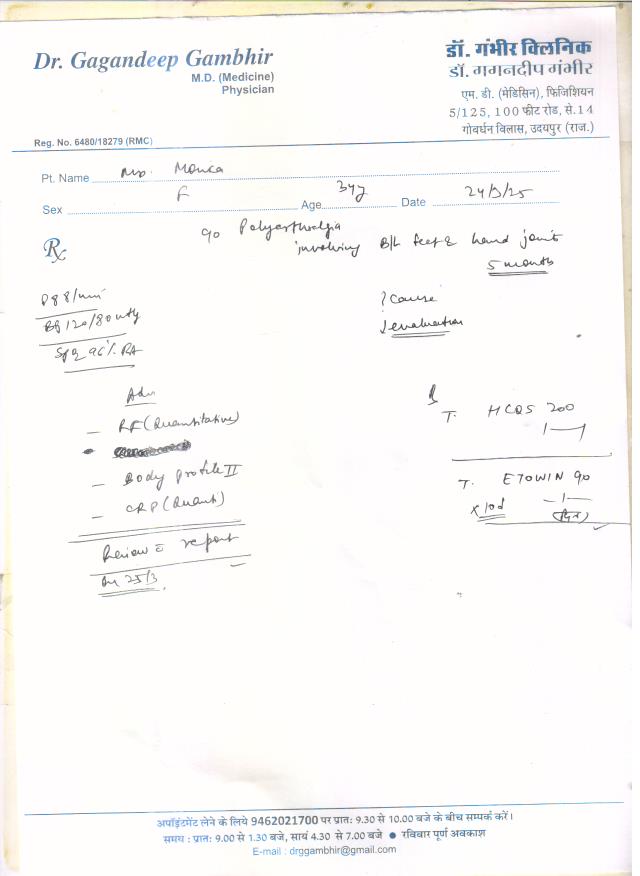 Dr. Gagandeep Gambhir
M.D. (Medicine)
Physician
Reg. No. 6480/18279 (RMC)
डॉ. गंभीर क्लिनिक
डॉ. गगनदीप गंभीर
एम. डी. (मेडिसिन), फिजिशियन
5/125, 100 फीट रोड, से.14
गोवर्धन विलास, उदयपुर (राज.)
Pt. Name Monica
Sex F Age 34y Date
Rx
Polyarthralgia
involving B/L feet & hand joints
5 months
88/min
BP 120/80
96% RA
? Cause
evaluation
Adv
— RF (Quantitative)
— Body profile II
— CRP (Quanti)
Review c report
25/3
T. HCQS 200
1
T. ETOWIN 90
x 10d — 1 —
अपॉइंटमेंट लेने के लिये 9462021700 पर प्रातः 9.30 से 10.00 बजे के बीच सम्पर्क करें।
समय : प्रातः 9.00 से 1.30 बजे, सायं 4.30 से 7.00 बजे ● रविवार पूर्ण अवकाश
E-mail : drggambhir@gmail.com